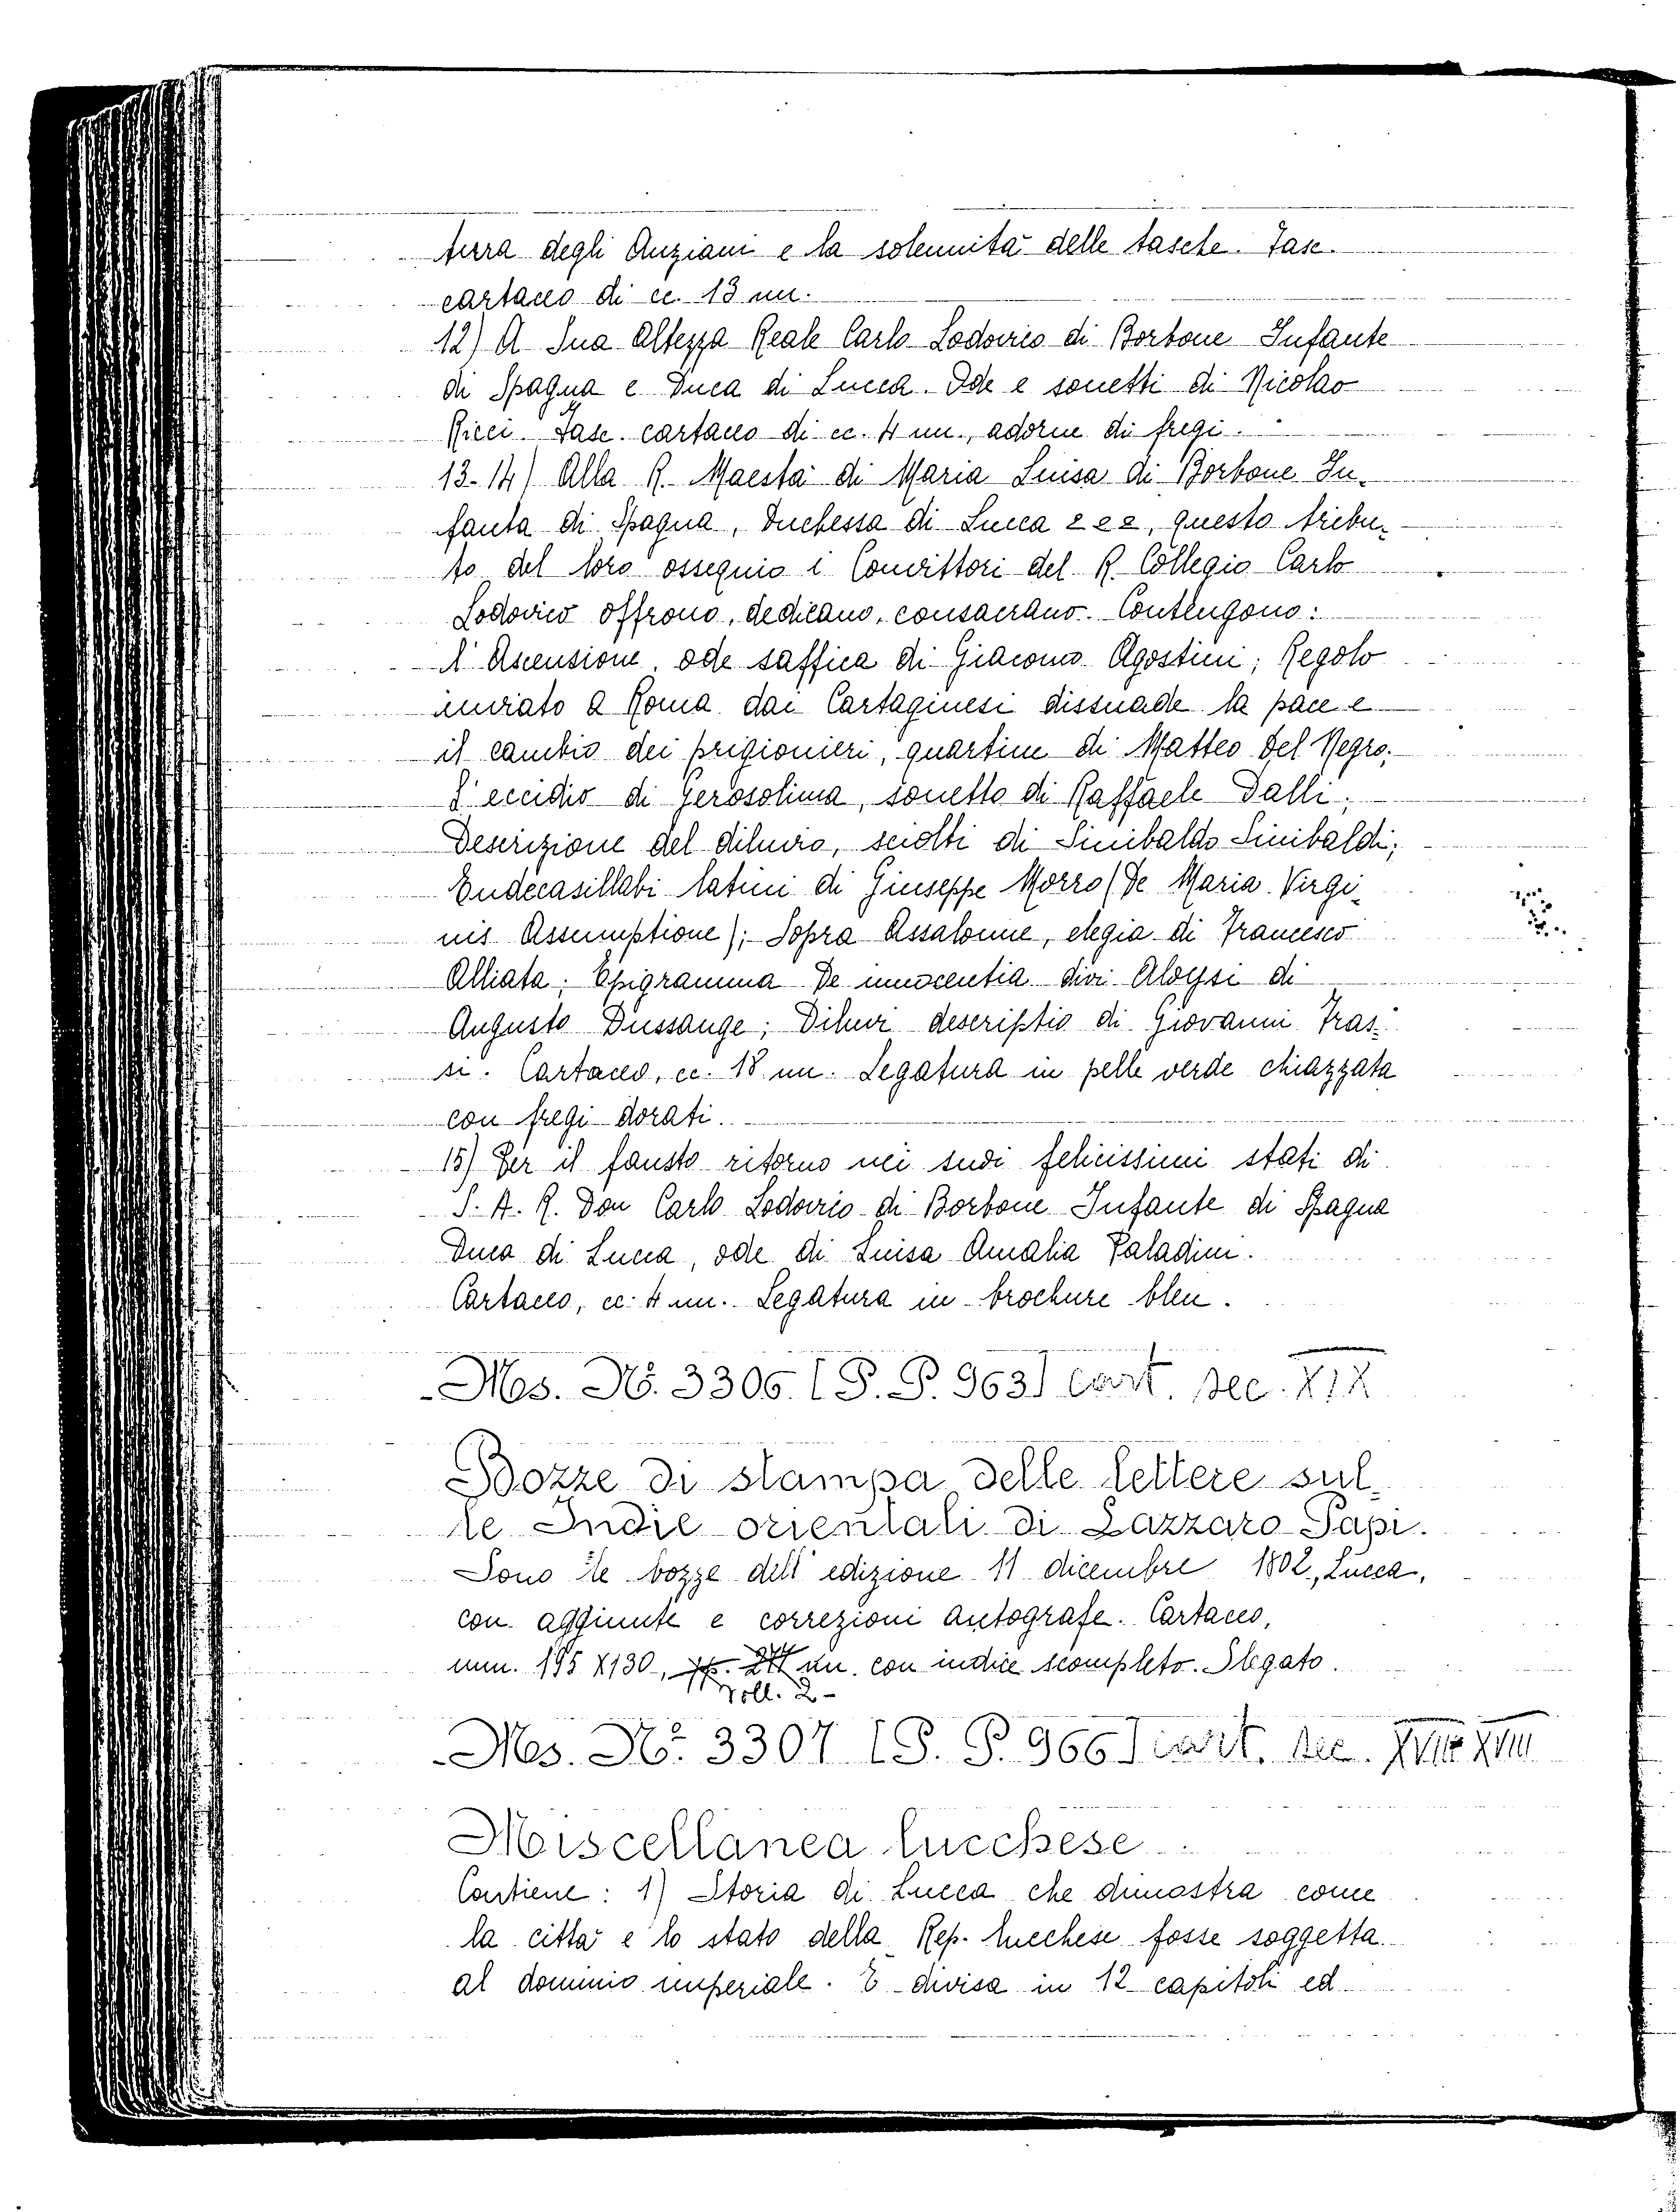 tura degli Anziani e la solennità delle tasche. Fasc.
cartaceo di cc. 13 nn.
12) A Sua Altezza Reale Carlo Lodovico di Borbone Infante
di Spagna e Duca di Lucca. Ode e sonetti di Nicolao
Ricci. Fasc. cartaceo di cc. 4 nn., adorne di fregi.
13-14) Alla R. Maestà di Maria Luisa di Borbone In-
fanta di Spagna, Duchessa di Lucca e e e, questo tribu-
to del loro ossequio i Convittori del R. Collegio Carlo
Lodovico offrono, dedicano, consacrano. Contengono:
L'Ascensione, ode saffica di Giacomo Agostini; Regolo
inviato a Roma dai Cartaginesi dissuade la pace e
il cambio dei prigionieri, quartine di Matteo Del Negro;
L'eccidio di Gerosolima, sonetto di Raffaele Dalli;
Descrizione del diluvio, sciolti di Sinibaldo Sinibaldi;
Endecasillabi latini di Giuseppe Morro (De Maria Virgi-
nis Assumptione); Sopra Assalonne, elegia di Francesco
Alliata; Epigramma De innocentia divi Aloysi di
Augusto Dussauge; Diluvi descriptio di Giovanni Tras-
si. Cartaceo, cc. 18 nn. Legatura in pelle verde chiazzata
con fregi dorati.
15) Per il fausto ritorno nei suoi felicissimi stati di
S. A. R. Don Carlo Lodovico di Borbone Infante di Spagna
Duca di Lucca, ode di Luisa Amalia Paladini.
Cartaceo, cc. 4 nn. Legatura in brochure bleu.
Mss. N.° 3306. [P. P. 963] cart. sec. XIX
Bozze di stampa delle lettere sul-
le Indie orientali di Lazzaro Papi.
Sono le bozze dell'edizione 11 dicembre 1802, Lucca,
con aggiunte e correzioni autografe. Cartaceo,
mm. 195 X 130, nn. con indice scompleto. Slegato.
Voll. 2-
Mss. N.° 3307 [P. P. 966] cart. sec. XVII-XVIII
Miscellanea lucchese
Contiene: 1) Storia di Lucca che dimostra come
la città e lo stato della Rep. lucchese fosse soggetta
al dominio imperiale. È divisa in 12 capitoli ed